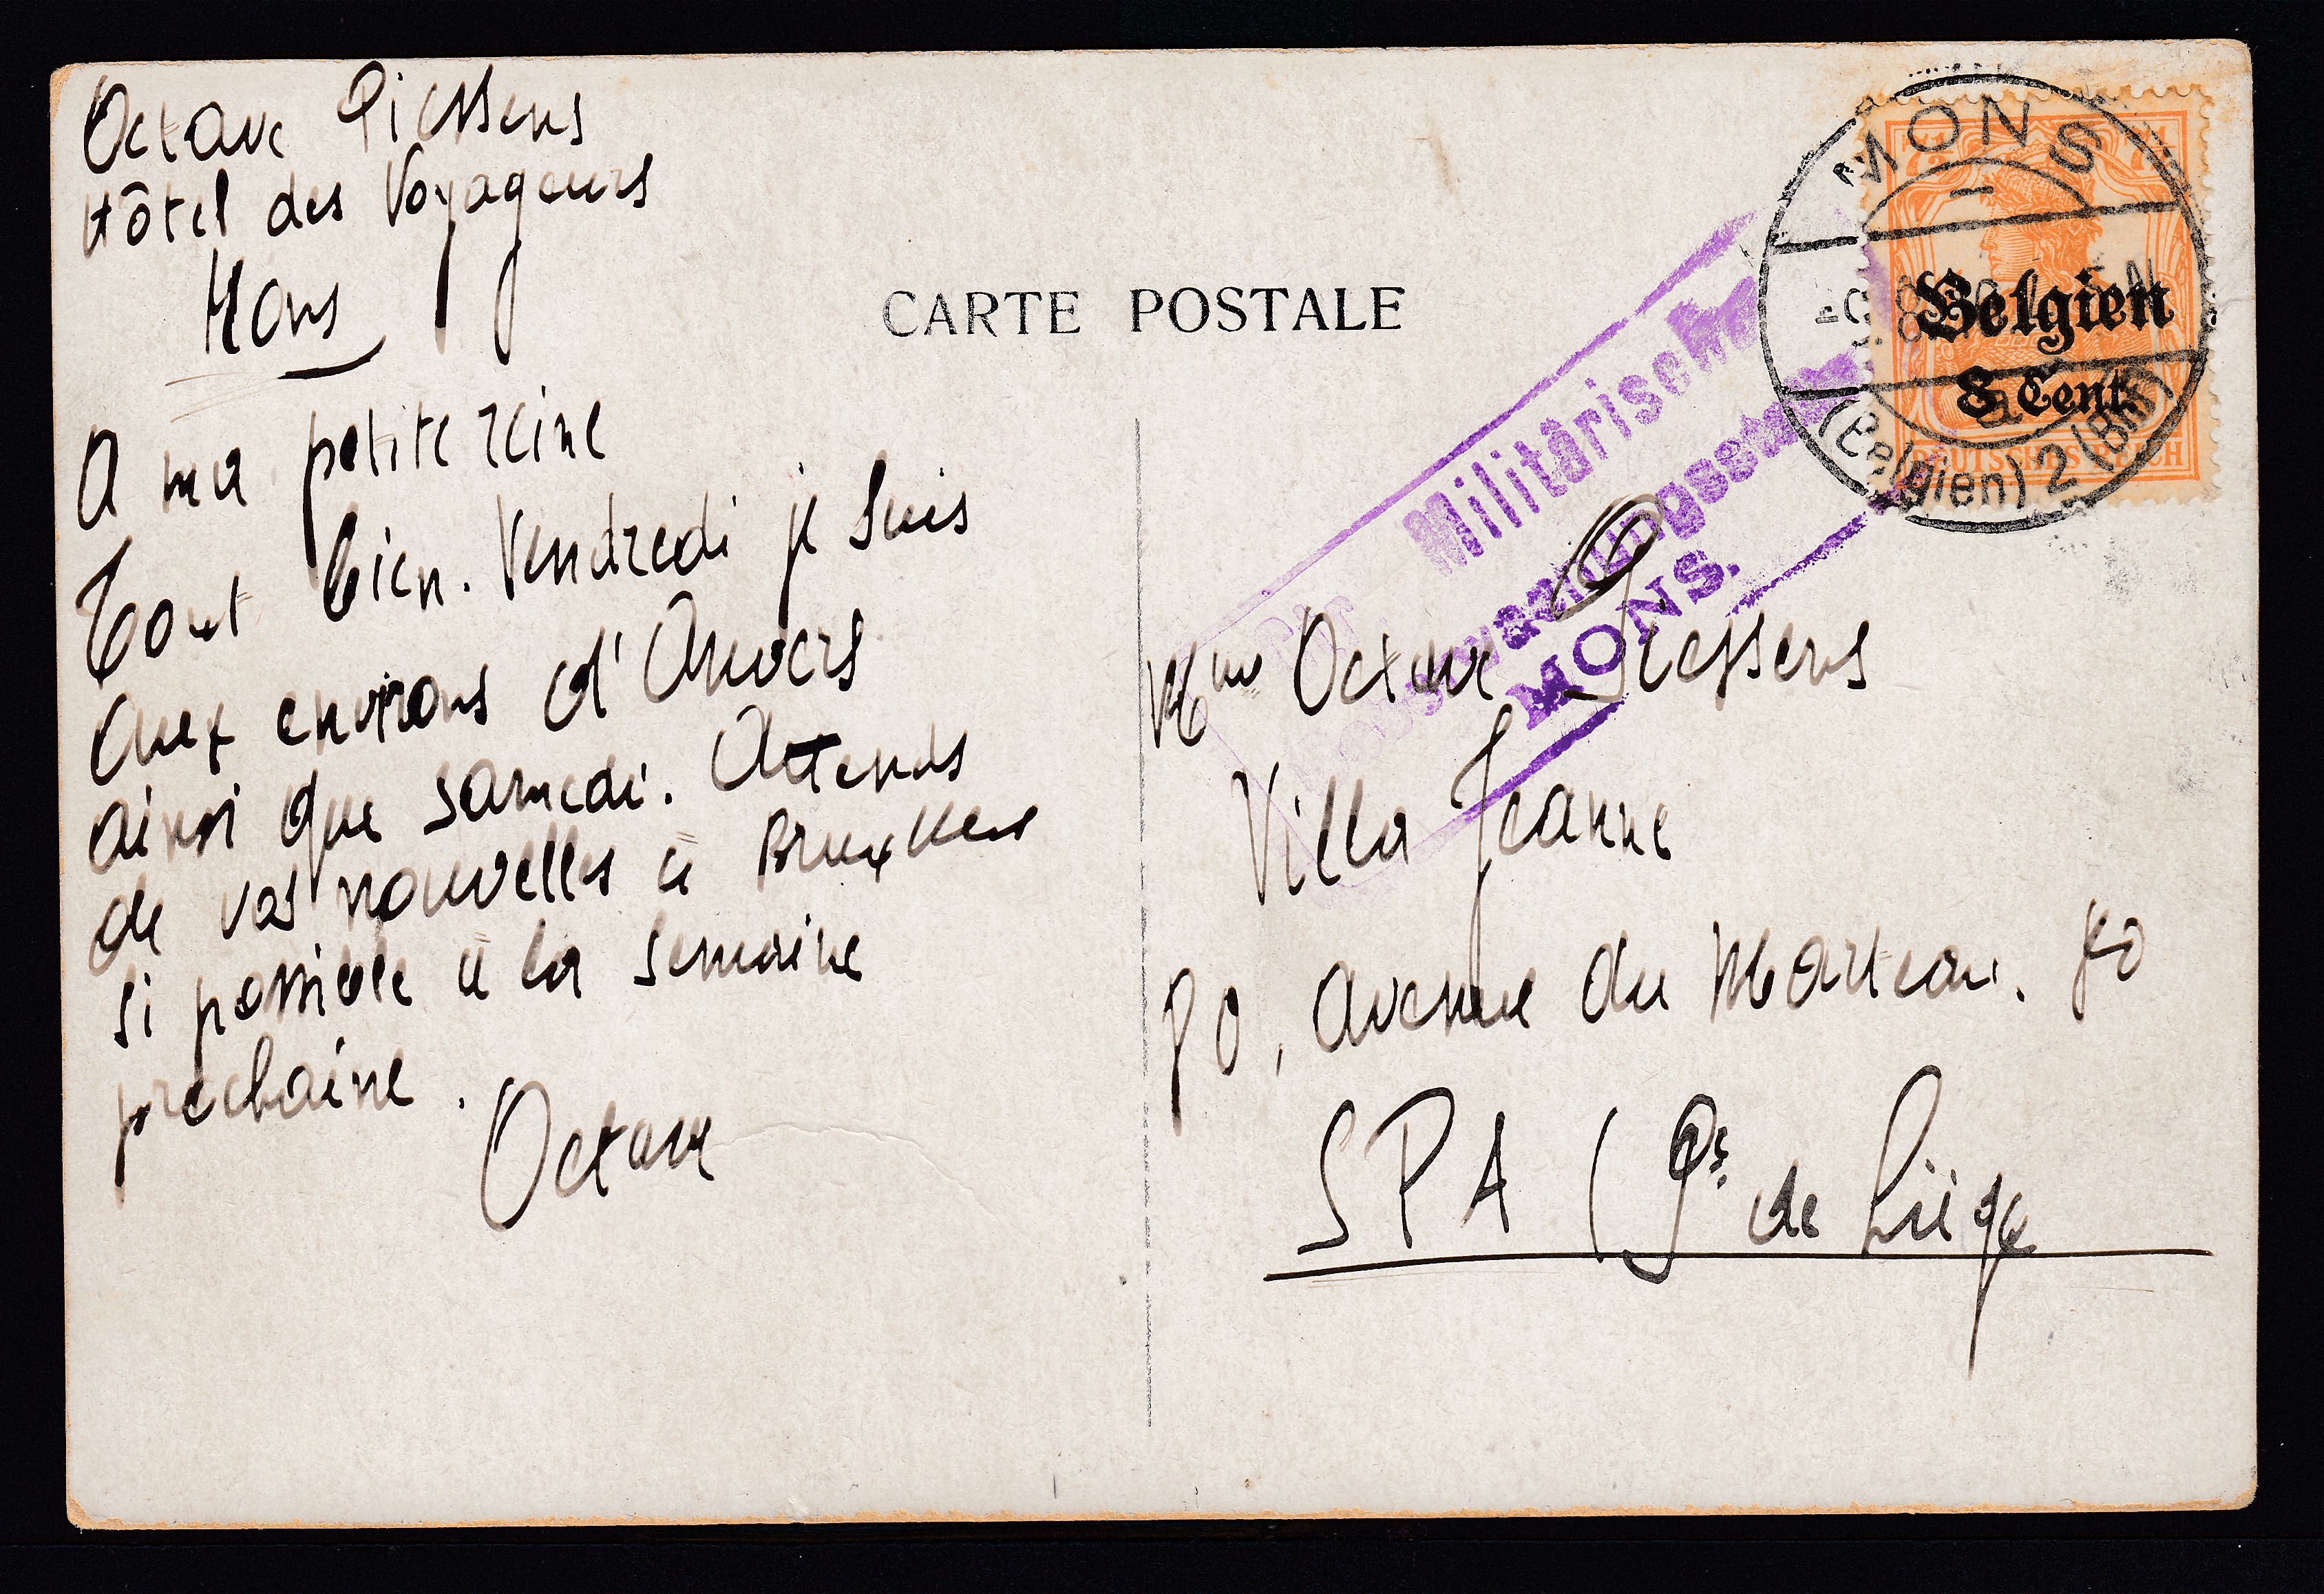 Octave Piessens
Hôtel des Voyageurs
Mons
A ma petite reine
Tout bien. Vendredi je suis
aux environs d'Anvers
ainsi que samedi. Attends
de vos nouvelles à Bruxelles
si possible à la semaine
prochaine.
Octave
CARTE POSTALE
MONS
(Belgien) 2 (Bhf)
a
Belgien
8 Cent.
DEUTSCHES REICH
Militärische
MONS.
Mme Octave Piessens
Villa Jeanne
80, avenue du Marteau. 80
SPA (Pce de Liège